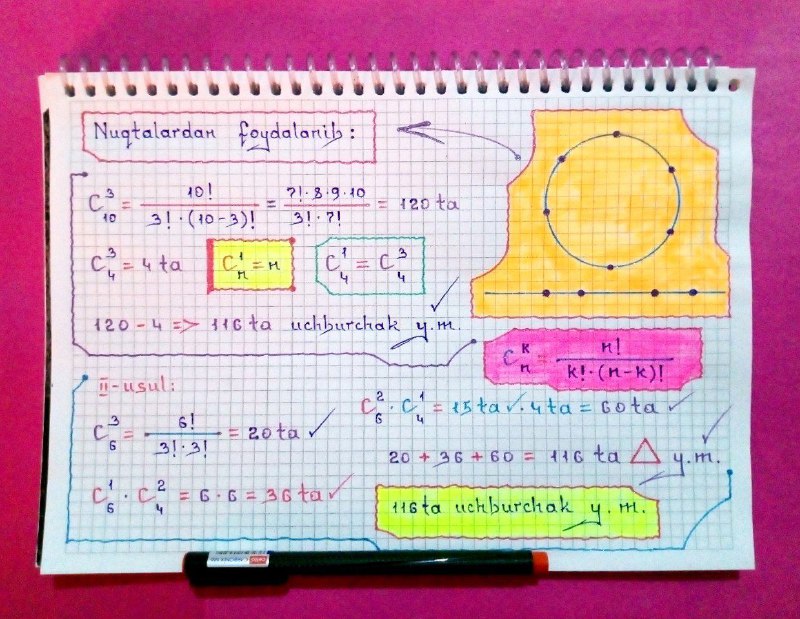 Nuqtalardan foydalanib:
C₁₀³ = 10! / 3!·(10-3)! = 7!·8·9·10 / 3!·7! = 120 ta
C₄³ = 4 ta
Cₙ¹ = n
C₄¹ = C₄³
120 - 4 => 116 ta uchburchak y.m.
Cₙᵏ = n! / k!·(n-k)!
II-usul:
C₆³ = 6! / 3!·3! = 20 ta ✓
C₆¹ · C₄² = 6·6 = 36 ta ✓
C₆² · C₄¹ = 15 ta ✓ · 4 ta = 60 ta ✓
20 + 36 + 60 = 116 ta △ y.m.
116 ta uchburchak y.m.